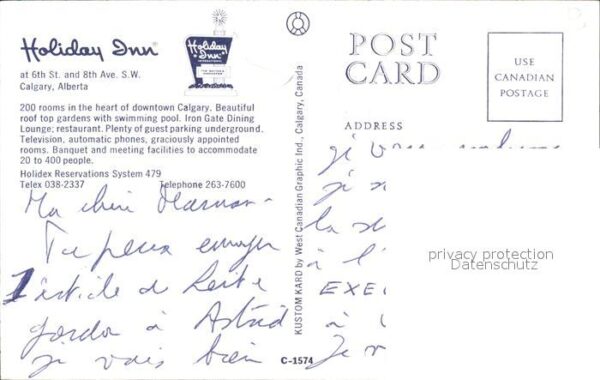 Holiday Inn
at 6th St. and 8th Ave. S.W.
Calgary, Alberta
200 rooms in the heart of downtown Calgary. Beautiful
roof top gardens with swimming pool. Iron Gate Dining
Lounge; restaurant. Plenty of guest parking underground.
Television, automatic phones, graciously appointed
rooms. Banquet and meeting facilities to accommodate
20 to 400 people.
Holidex Reservations System 479
Telex 038-2337 Telephone 263-7600
Holiday
Inn
POST
CARD
USE
CANADIAN
POSTAGE
ADDRESS
KUSTOM KARD by West Canadian Graphic Ind., Calgary, Canada
C-1574
Ma
Tu peux envoyer
l'article de
à Astrid
je vais bien
je
la
à l'
EXE
à
Je
privacy protection
Datenschutz